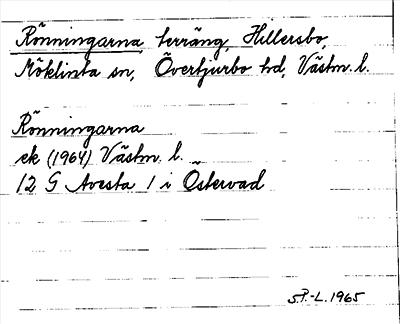 Rönningarna terräng, Hillersbo,
Möklinta sn, Övertjurbo hd, Västm. l.
Rönningarna
ek (1964) Västm. l.
12 G Avesta 1 i Östervad
S.P.-L. 1965